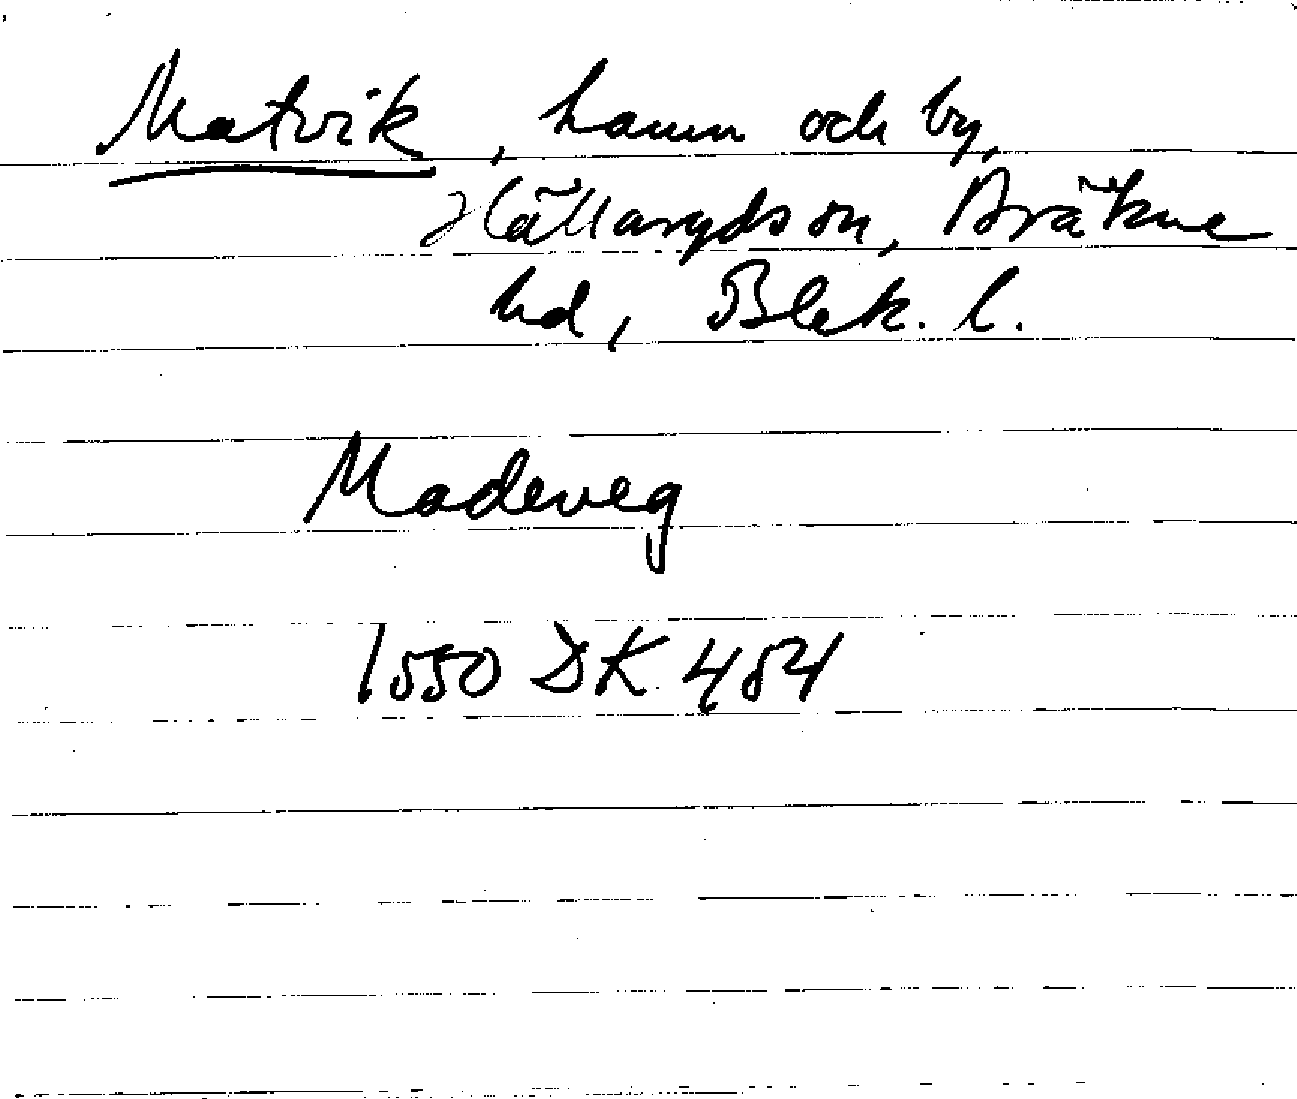 Matvik, hamn och by,
Hällaryds sn, Bräkne
hd, Blek. l.
Madeveg
1550 DK 484